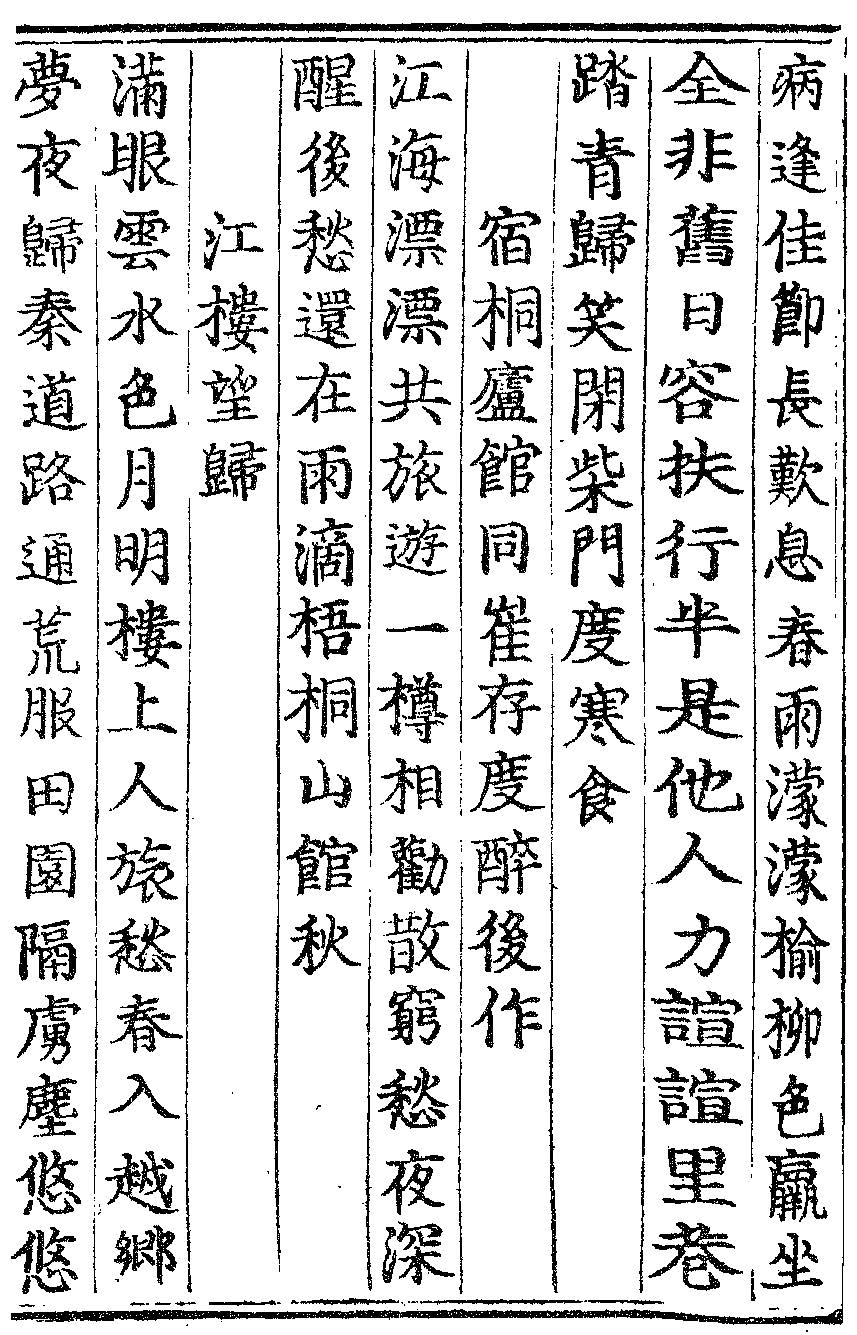 病逢佳節長歎息春雨濛濛榆柳色羸坐
全非舊日容扶行半是他人力諠諠里巷
踏青歸笑閉柴門度寒食
宿桐廬館同崔存度醉後作
江海漂漂共旅遊一樽相勸散窮愁夜深
醒後愁還在雨滴梧桐山館秋
江樓望歸
滿眼雲水色月明樓上人旅愁春入越鄉
夢夜歸秦道路通荒服田園隔虜塵悠悠